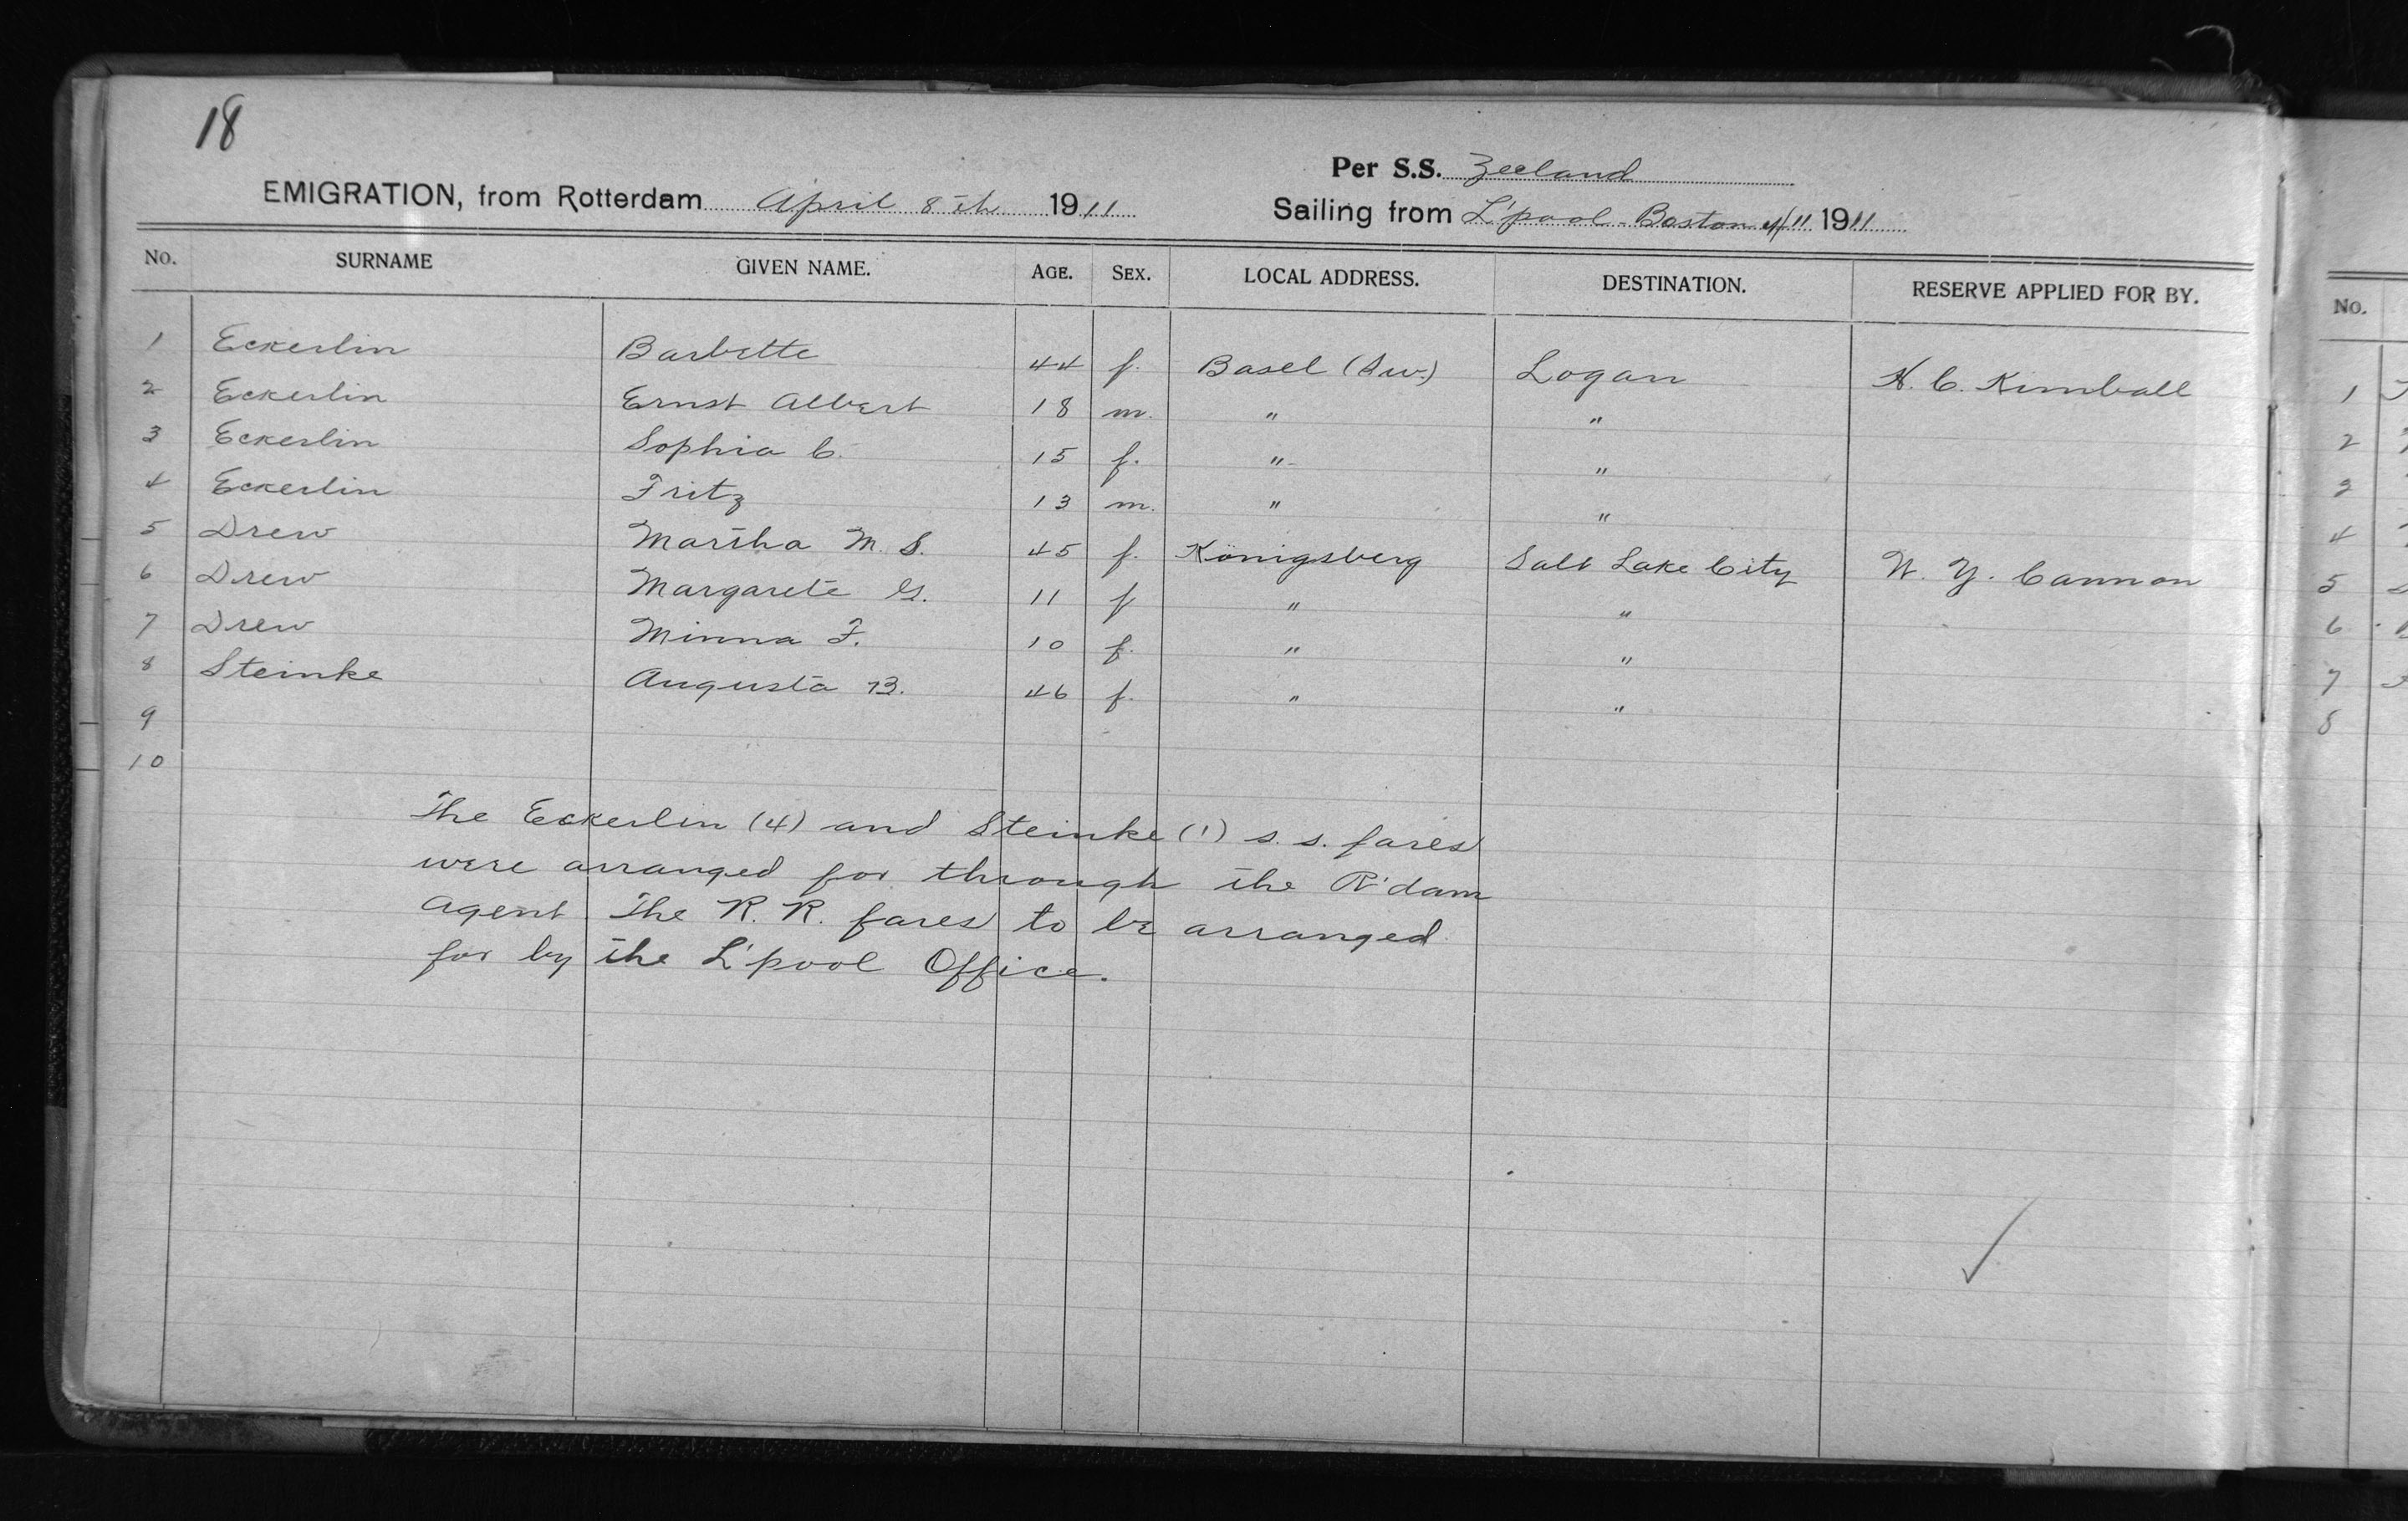 18
Per S.S. Zeeland
EMIGRATION, from Rotterdam April 8th 1911
Sailing from L'pool-Boston 4/11 1911
No. SURNAME GIVEN NAME. AGE. SEX. LOCAL ADDRESS. DESTINATION. RESERVE APPLIED FOR BY.
1 Eckerlin Barbette 44 f. Basel (Sw.) Logan H. C. Kimball
2 Eckerlin Ernst Albert 18 m. " "
3 Eckerlin Sophia C. 15 f. " "
4 Eckerlin Fritz 13 m. " "
5 Drew Martha M. S. 45 f. Königsberg Salt Lake City W. Y. Cannon
6 Drew Margarete G. 11 f " "
7 Drew Minna F. 10 f. " "
8 Steinke Augusta B. 46 f. " "
9
10
The Eckerlin (4) and Steinke (1) s. s. fares
were arranged for through the R'dam
Agent The R. R. fares to be arranged
for by the L'pool Office.
No.
1
2
3
4
5
6
7
8